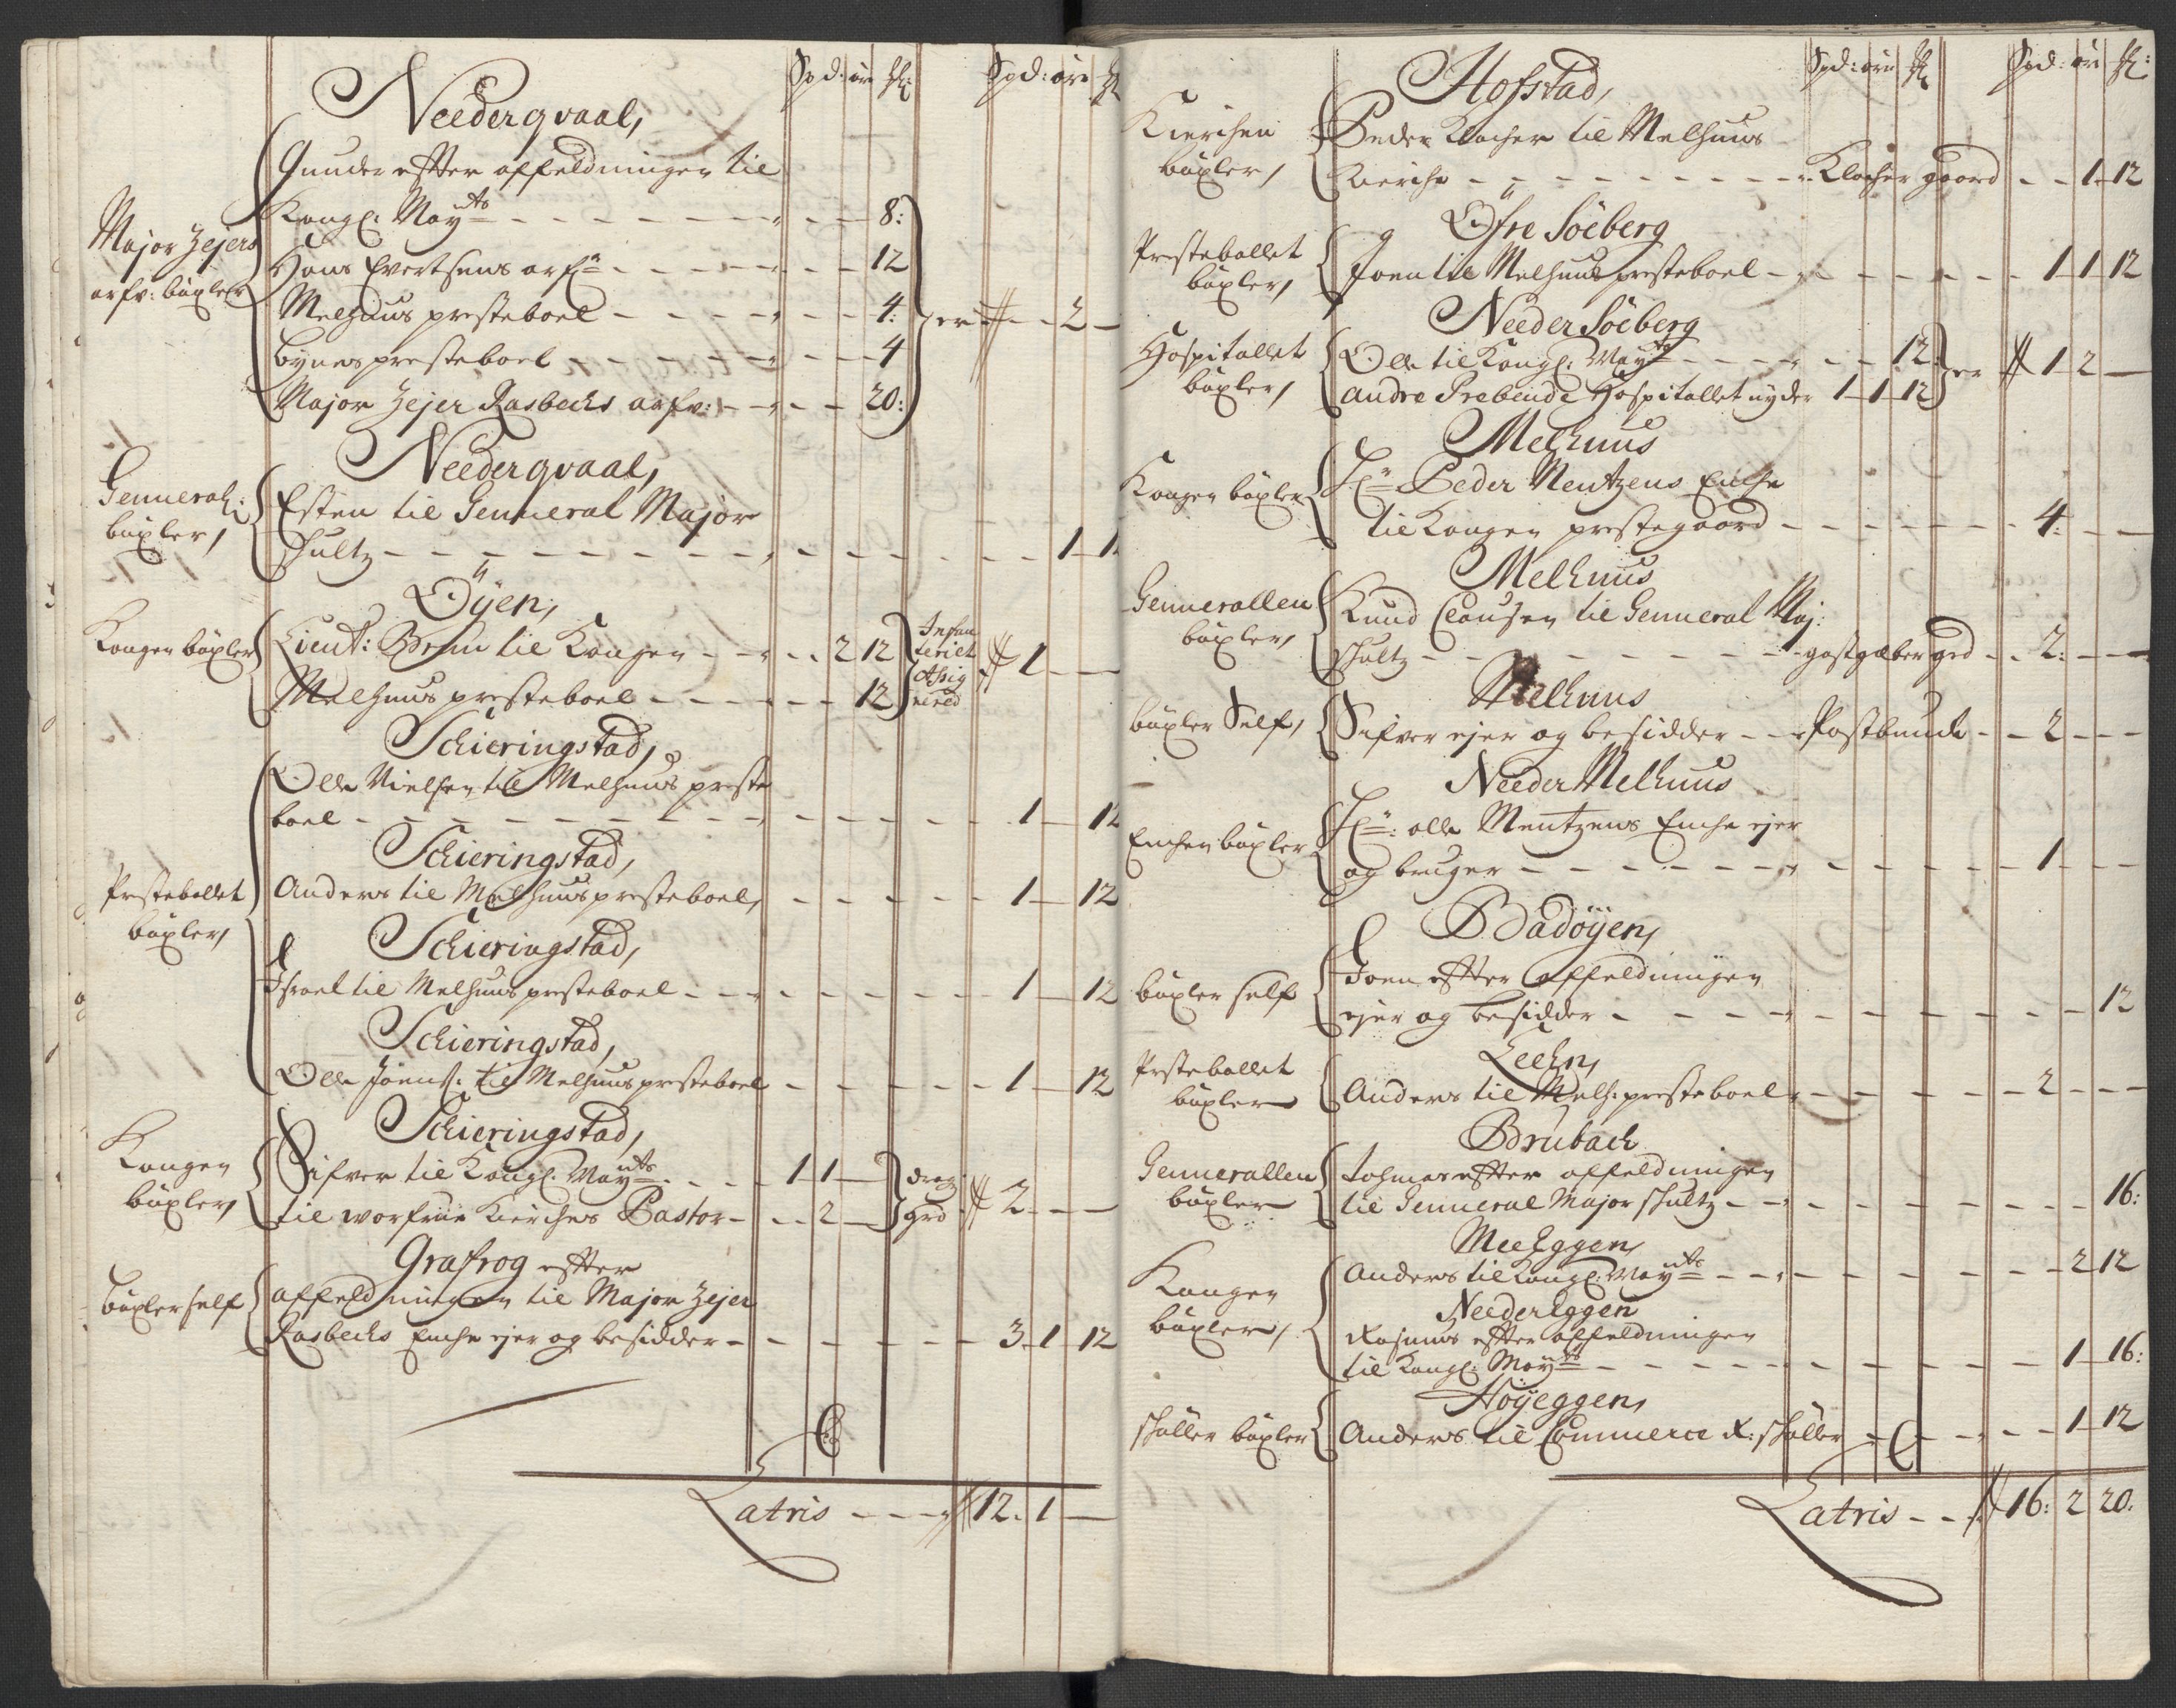 Spd: øre
Spd: øre
Needergvaal,
Gunder effter affeldningen til
Kongl: May ts - - - 8:
Major Zejers
arfv: bøxler
Hans Evertsens arf - - - 12
Melhuus presteboel - - - 4: er - - 2 -
Bynes presteboel - - - 4
Major Zejer Rasbechs arfv: - - - 20:
Needergvaal,
General:
bøxler,
Esten til General Major
Schultz - - - 1 - 1
Øyen,
Kongen bøxler
Lieut: Brun til Kongen - - - 2 12
Infan
teriet
Assig
nered
1 - -
Melhuus presteboel - - - 12
Schieringstad,
Olle Nielsen til Melhuus preste
boel - - - 1 - 12
Schieringstad,
Prestebollet
bøxler,
Anders til Melhuus presteboel, - - - 1 - 12
Schieringstad,
Israel til Melhuus presteboel - - - 1 - 12
Schieringstad,
Olle Joens: til Melhuus presteboel - - - 1 - 12
Schieringstad,
Kongen
bøxler,
Sifver til Kongl: May ts - - - 1 1 -
drag
grd
2 - -
til worfrue Kierches Pastor - - - 2 -
Grafrog effter
bøxler self
affeldningen til Major Zejer
Rasbechs Enche ejer og besidder - - - 3 1 12
Latris - - - 12. 1 -

Spd: øre
Spd: øre
Hofstad,
Kierchen
bøxler,
Peder Klocher til Melhuus
Kierche - - - Klocher gaard - - 1 12
Øfre Söeberg
Prestebollet
bøxler,
Joen til Melhuus presteboel - - - 1 1 12
Needer Söeberg
Hospitallet
bøxler,
Olle til Kongl: May ts - - - 12 er 1 2 -
andre Prebende Hospitallet nyder 1 1 12
Melhuus
Kongen bøxler
Hr Peder Mentzens Enche
til Kongen prestegaard - - - 4: - -
Melhuus
Generallen
bøxler,
Knud Clausen til General Maj:
Schultz - - - gastgæber grd - - 2: - -
Melhuus
bøxler Self,
Sifver ejer og besidder - - Postbunde - - 2 - -
Needer Melhuus
Enchen bøxler
Hr: olle Mentzens Enche ejer
og bruger - - - 1 - -
Badøyen,
bøxler self
Joen effter affeldningen
ejer og besidder - - - 12
Leehn,
Prestebollet
bøxler
Anders til Melh: presteboel - - - 2 - -
Brubach
Generallen
bøxler
effter affeldningen
til General Major Schultz - - - 16:
MeeEggen,
Kongen
bøxler,
Anders til Kongl: May ts - - - 2 12
NeederEggen
Rasmus effter affeldningen
til Kongl: May ts - - - 1 16:
Høyeggen,
Schøller bøxler
Anders til Commerce R: Schøller - - - 1 12
Latris - - - 16: 2 20.